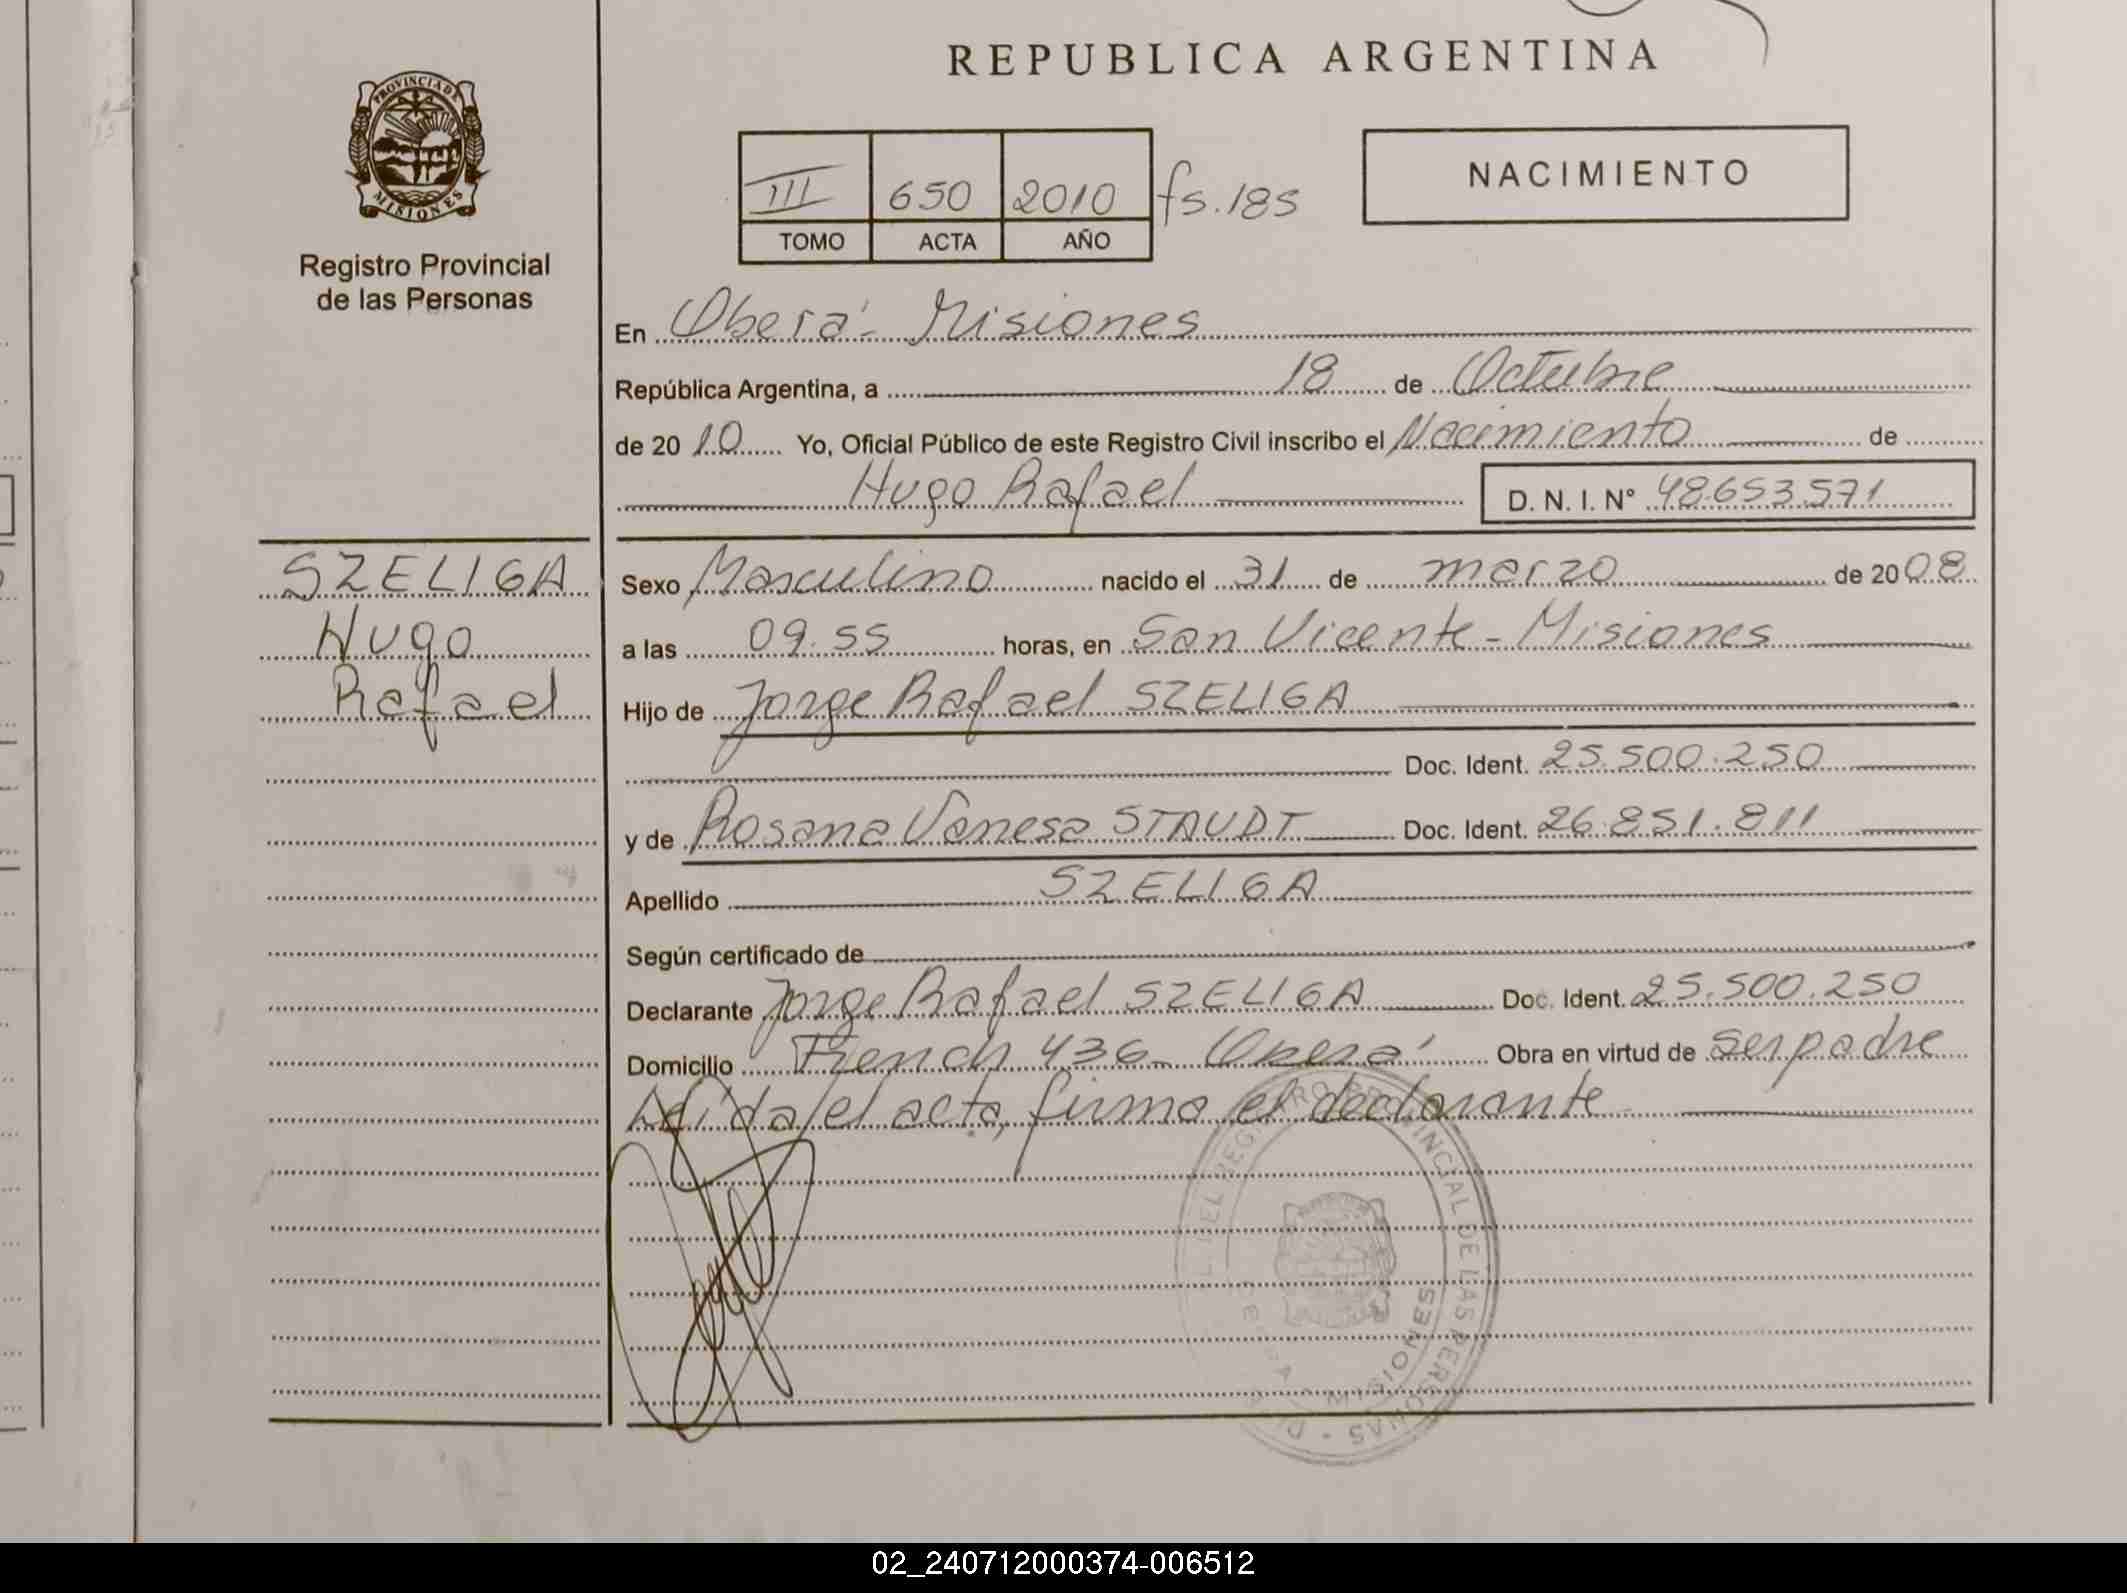 REPUBLICA ARGENTINA
PROVINCIA DE
MISIONES
Registro Provincial
de las Personas
III 650 2010 fs. 185
TOMO ACTA AÑO
NACIMIENTO
En Oberá - Misiones
República Argentina, a 18 de Octubre
de 2010 Yo, Oficial Público de este Registro Civil inscribo el Nacimiento de
Hugo Rafael D. N. I. N° 48.653.571
SZELIGA
Hugo
Rafael
Sexo Masculino nacido el 31 de marzo de 2008
a las 09.55 horas, en San Vicente - Misiones
Hijo de Jorge Rafael SZELIGA
Doc. Ident. 25.500.250
y de Rosana Vanesa STAUDT Doc. Ident. 26.851.811
Apellido SZELIGA
Según certificado de
Declarante Jorge Rafael SZELIGA Doc. Ident. 25.500.250
Domicilio French 436 - Oberá Obra en virtud de ser padre
Leída el acta, firma el declarante
REGISTRO PROVINCIAL DE LAS PERSONAS
MISIONES
02_240712000374-006512